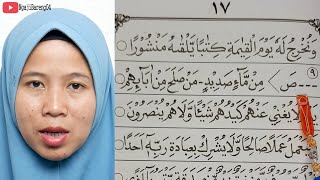 NgajiBarengDQ
١٧
وَنُخْرِجُ لَهُ يَوْمَ الْقِيٰمَةِ كِتٰبًا يَلْقٰىهُ مَنْشُوْرًا
٩
ص مِنْ مَّآءٍ صَدِيْدٍ، مَنْ صَلَحَ مِنْ اٰبَآئِهِمْ
يُغْنِيْ عَنْهُمْ كَيْدُهُمْ شَيْئًا وَّلَا هُمْ يُنْصَرُوْنَ
عَمَلًا صَالِحًا وَّلَا يُشْرِكْ بِعِبَادَةِ رَبِّهٖٓ اَحَدًا